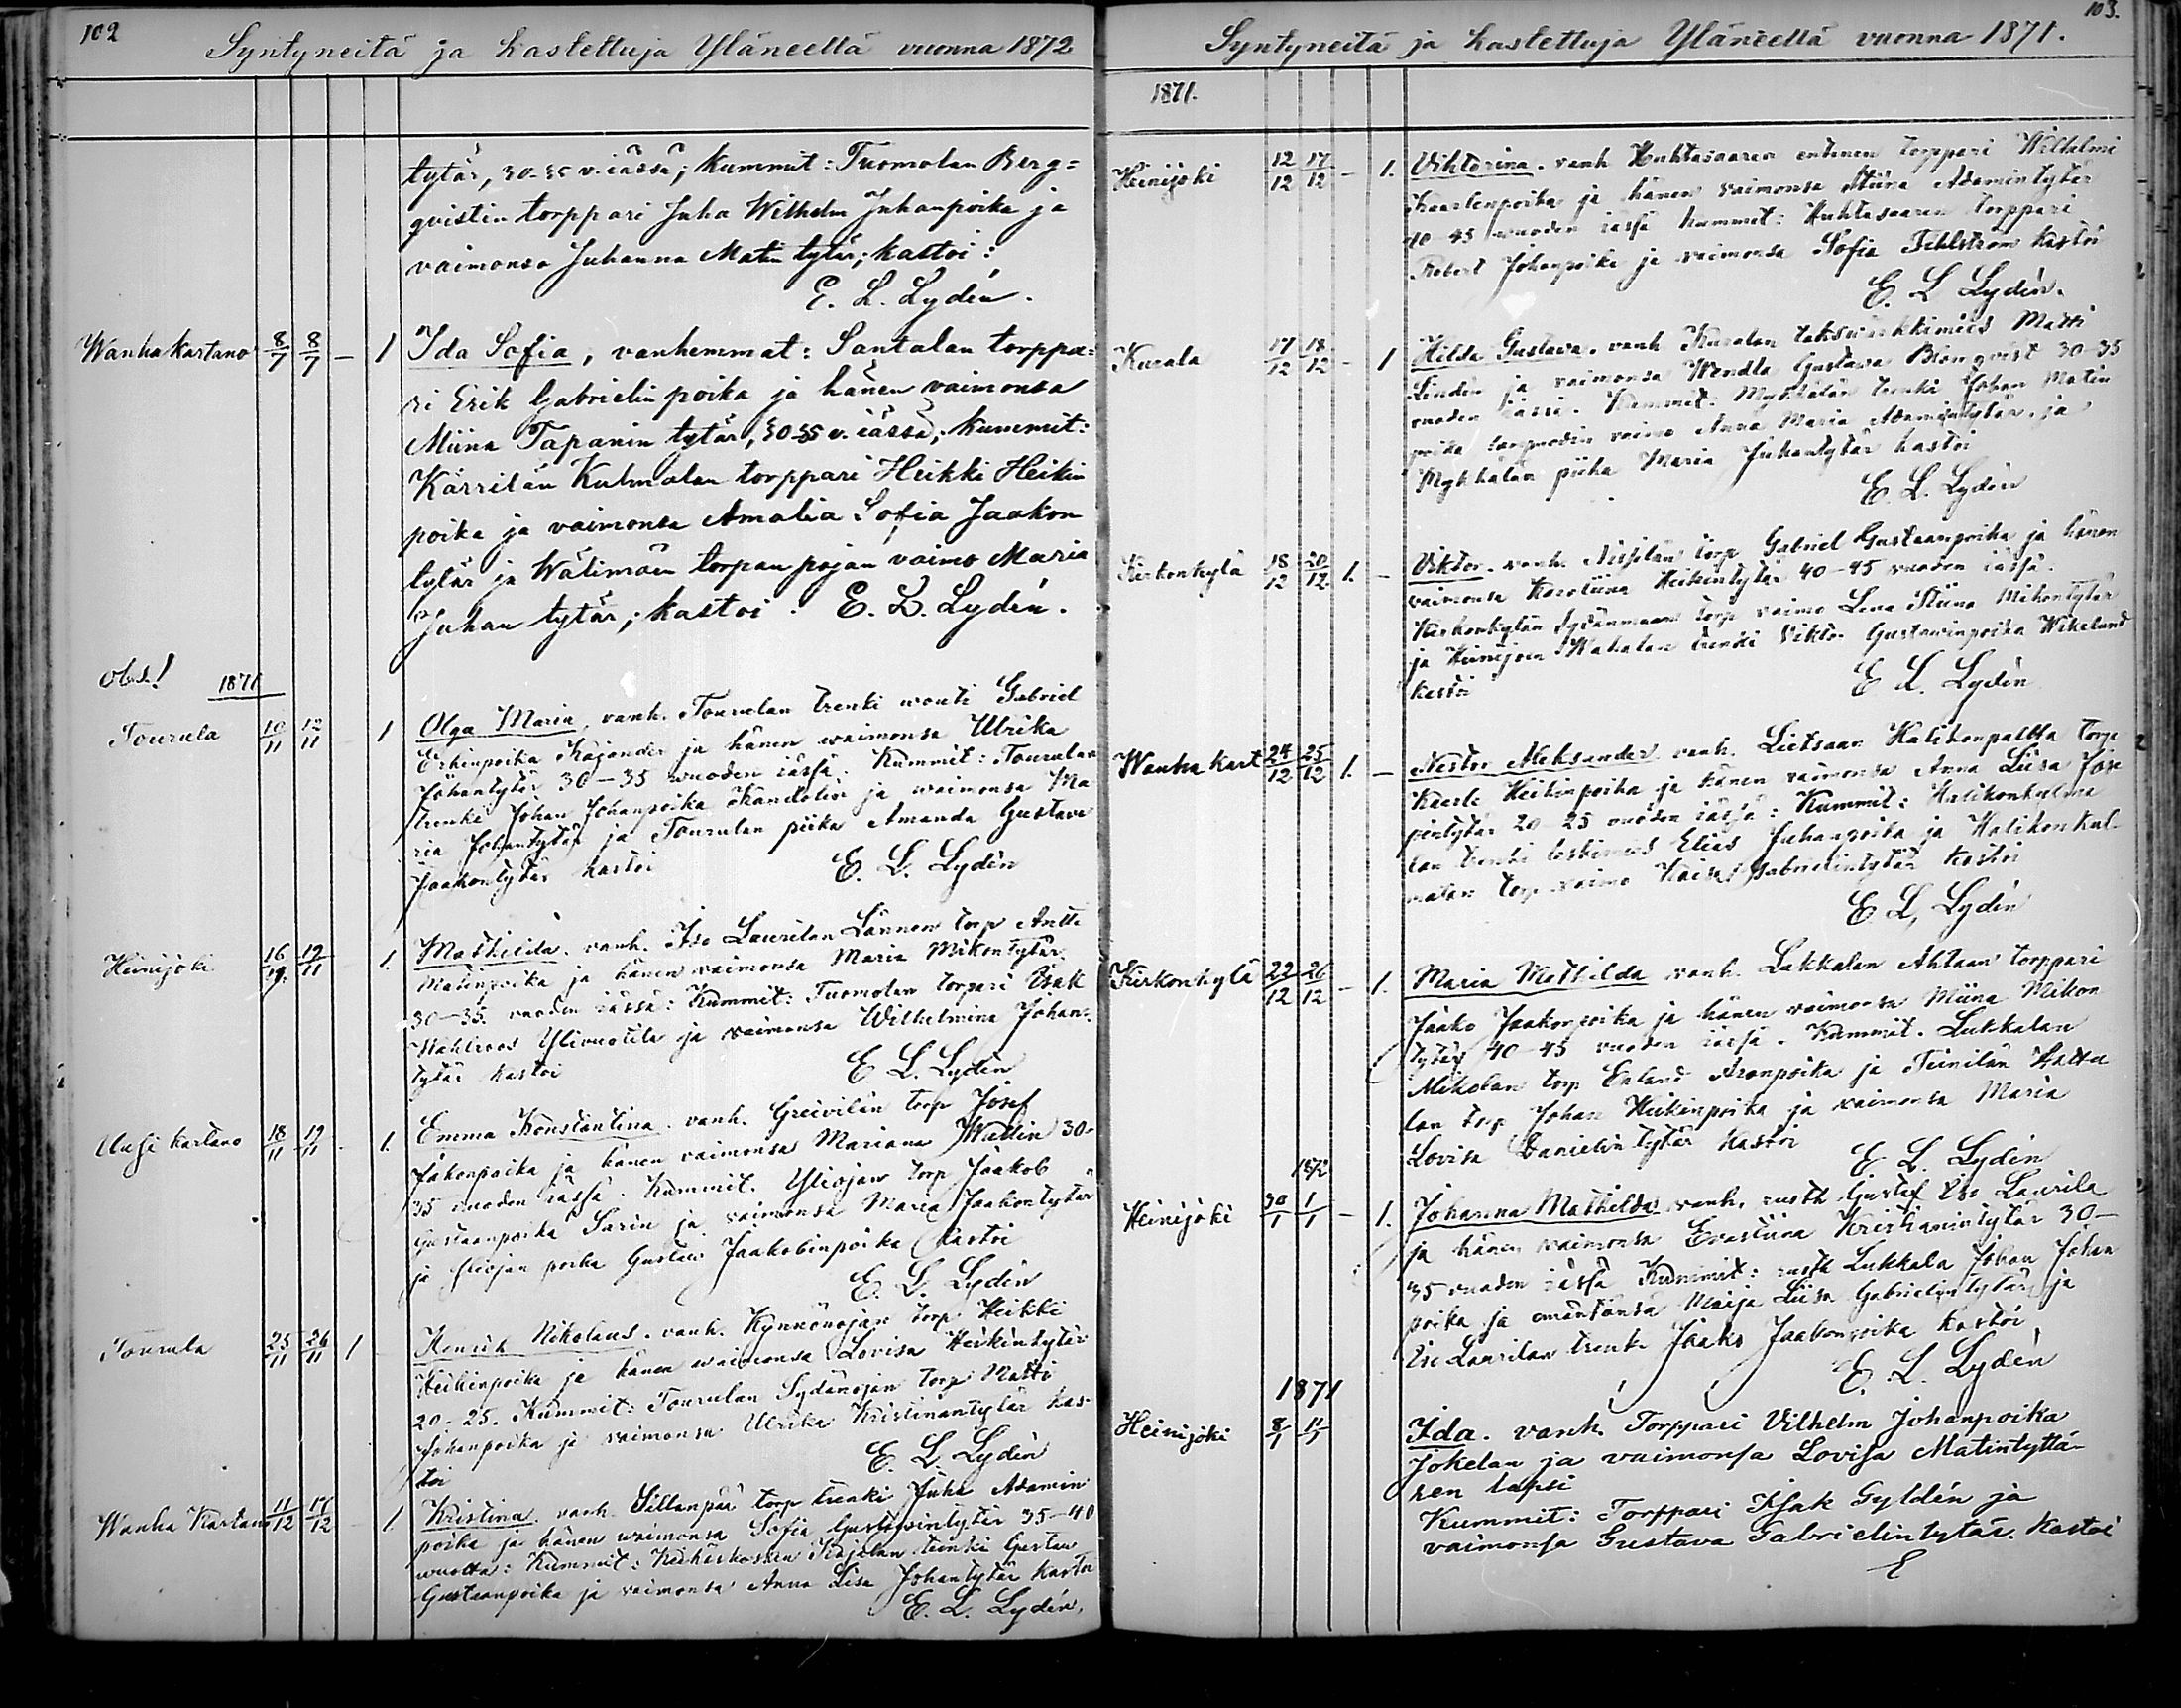 102
Syntyneitä ja kastettuja Yläneellä vuonna 1872
tytär, 30-35 v. iässä; kummit: Tuomolan Berg=
qvistin torppari Juha Wilhelm Juhanpoika ja
vaimonsa Juhanna Matin tytär; kastoi:
E. L. Lydén.
Wanhakartano 8/7 8/7 – 1 Ida Sofia, vanhemmat: Santalan torppa=
ri Erik Gabrielin poika ja hänen vaimonsa
Miina Tapanin tytär, 30-35 v. iässä; kummit:
Kärrilän Kulmalan torppari Heikki Heikin
poika ja vaimonsa Amalia Sofia Jaakon
tytär ja Wälimäen torpan pojan vaimo Maria
Juhan tytär; kastoi: E. L. Lydén.
obs! 1871
Tourula 10/11 12/11 1 Olga Maria, vanh. Tourulan trenki wouti Gabriel
Erkinpoika Kajander ja hänen waimonsa Ulrika
Johantytär 30–35 wuoden iässä. Kummit: Tourulan
trenki Johan Johanpoika Kandolin ja waimonsa Ma
ria Johantytär ja Tourulan piika Amanda Gustava
Jaakontytär kastoi E. L. Lydén
Heinijoki 16/11 19/11 1. Mathilda. vanh. Iso Laurilan Lännen torp Antti
Matinpoika ja hänen vaimonsa Maria Mikontytär.
30–35. vuoden iässä: Kummit: Tuomolan torpari Isak
Wahlroos Ylivuotila ja vaimonsa Wilhelmina Johan-
tytär kastoi E. L. Lydén
Uusi kartano 18/11 19/11 1. Emma Konstantina. vanh. Greivilän torp Josef
Juhonpoika ja hänen vaimonsa Mariana Wallin 30-
35 vuoden iässä. Kummit. Yliojan torp Jaakob
Gustaanpoika Sarin ja vaimonsa Maria Jaakontytär
ja Yliojan poika Gustav Jaakobinpoika kastoi
E. L. Lydén
Tourula 25/11 26/11 1 Henrik Nikolaus. vanh. Kynnönojan torp Heikki
Heikinpoika ja hänen waimonsa Lovisa Heikintytär
20-25. Kummit: Tourulan Sydänojan torp Matti
Johanpoika ja vaimonsa Ulrika Kristianintytär kas-
toi E. L. Lydén
Wanha Kartano 11/12 17/12 – 1. Kristina. vanh. Sillanpää torp trenki Juha Adamin
poika ja hänen waimonsa Sofia Gustavintytär 35–40
wuotta: Kummit: Keihäskosken trenki Gustav
Gustaanpoika ja vaimonsa Anna Lisa Johantytär kastoi
E. L. Lydén.
103.
Syntyneitä ja kastettuja Yläneellä vuonna 1871.
1871.
Heinijoki 12/12 17/12 – 1. Viktorina. vanh Huhtasaaren entinen torppari Wilhelmi
Kaarlenpoika ja hänen vaimonsa Stiina Adamintytär
40–45 vuoden iässä kummit: Huhtasaaren torppari
Robert Johanpoika ja vaimonsa Sofia Fehlström kastoi
E. L Lydén.
Kurala 17/12 18/12 – 1 Hilda Gustava. vanh Kuralan Matti
Lindén ja vaimonsa Wendla Gustava Blomqvist 30–35
vuoden iässä. Kummit: Mykkälän trenki Johan Matin
poika vaimo Anna Maria Adamintytär. ja
Mykkälän piika Maria Juhantytär kastoi
E. L. Lydén
Kirkonkylä 18/12 20/12 1. – Viktor. vanh. torp Gabriel Gustaanpoika ja hänen
vaimonsa Karoliina Heikintytär 40–45 vuoden iässä.
Kirkonkylän Sydänmaan torp vaimo Lena Stiina Mikontytär
ja Heinijoen trenki Viktor Gustavinpoika Wikelund
kastoi E. L. Lydén
Wanha kart 24/12 25/12 1. – Nestor Aleksander vanh. Lietsaan torp
Kaarle Heikinpoika ja hänen vaimonsa Anna Liisa Jose
pintytär 20–25 vuoden iässä: Kummit: Halikonkulma
lan trenki leskimies Elias Juhanpoika ja Halikonkul-
malan torp vaimo Kaisa Gabrielintytär kastoi
E. L. Lydén
Kirkonkylä 22/12 26/12 – 1. Maria Mathilda vanh. Lukkalan Ahtaan torppari
Jaako Jaakonpoika ja hänen vaimonsa Miina Mikon
tytär 40–45 vuoden iässä. Kummit. Lukkalan
Mikolan torp Erland Aronpoika ja Teinilän
lan torp Johan Heikinpoika ja vaimonsa Maria
Lovisa Danielin tytär kastoi
E. L. Lydén
1872
Heinijoki 30/1 1/1 – 1. Johanna Mathilda vanh. rusth Gustaf Iso Laurila
ja hänen vaimonsa Evastiina Kristianintytär 30–
35 vuoden iässä Kummit: rusth Lukkala Johan Johan
poika ja emäntänsä Maija Liisa Gabrielintytär ja
Iso Laurilan trenki Jaako Jaakonpoika kastoi
E. L. Lydén
1871
Heinijoki 8/1 11/1 Ida. vanh. Torppari Vilhelm Johanpoika
Jokelan ja vaimonsa Lovisa Matintyttä-
ren lapsi
Kummit: Torppari Isak Gyldén ja
vaimonsa Gustava Gabrielintytär. kastoi
E